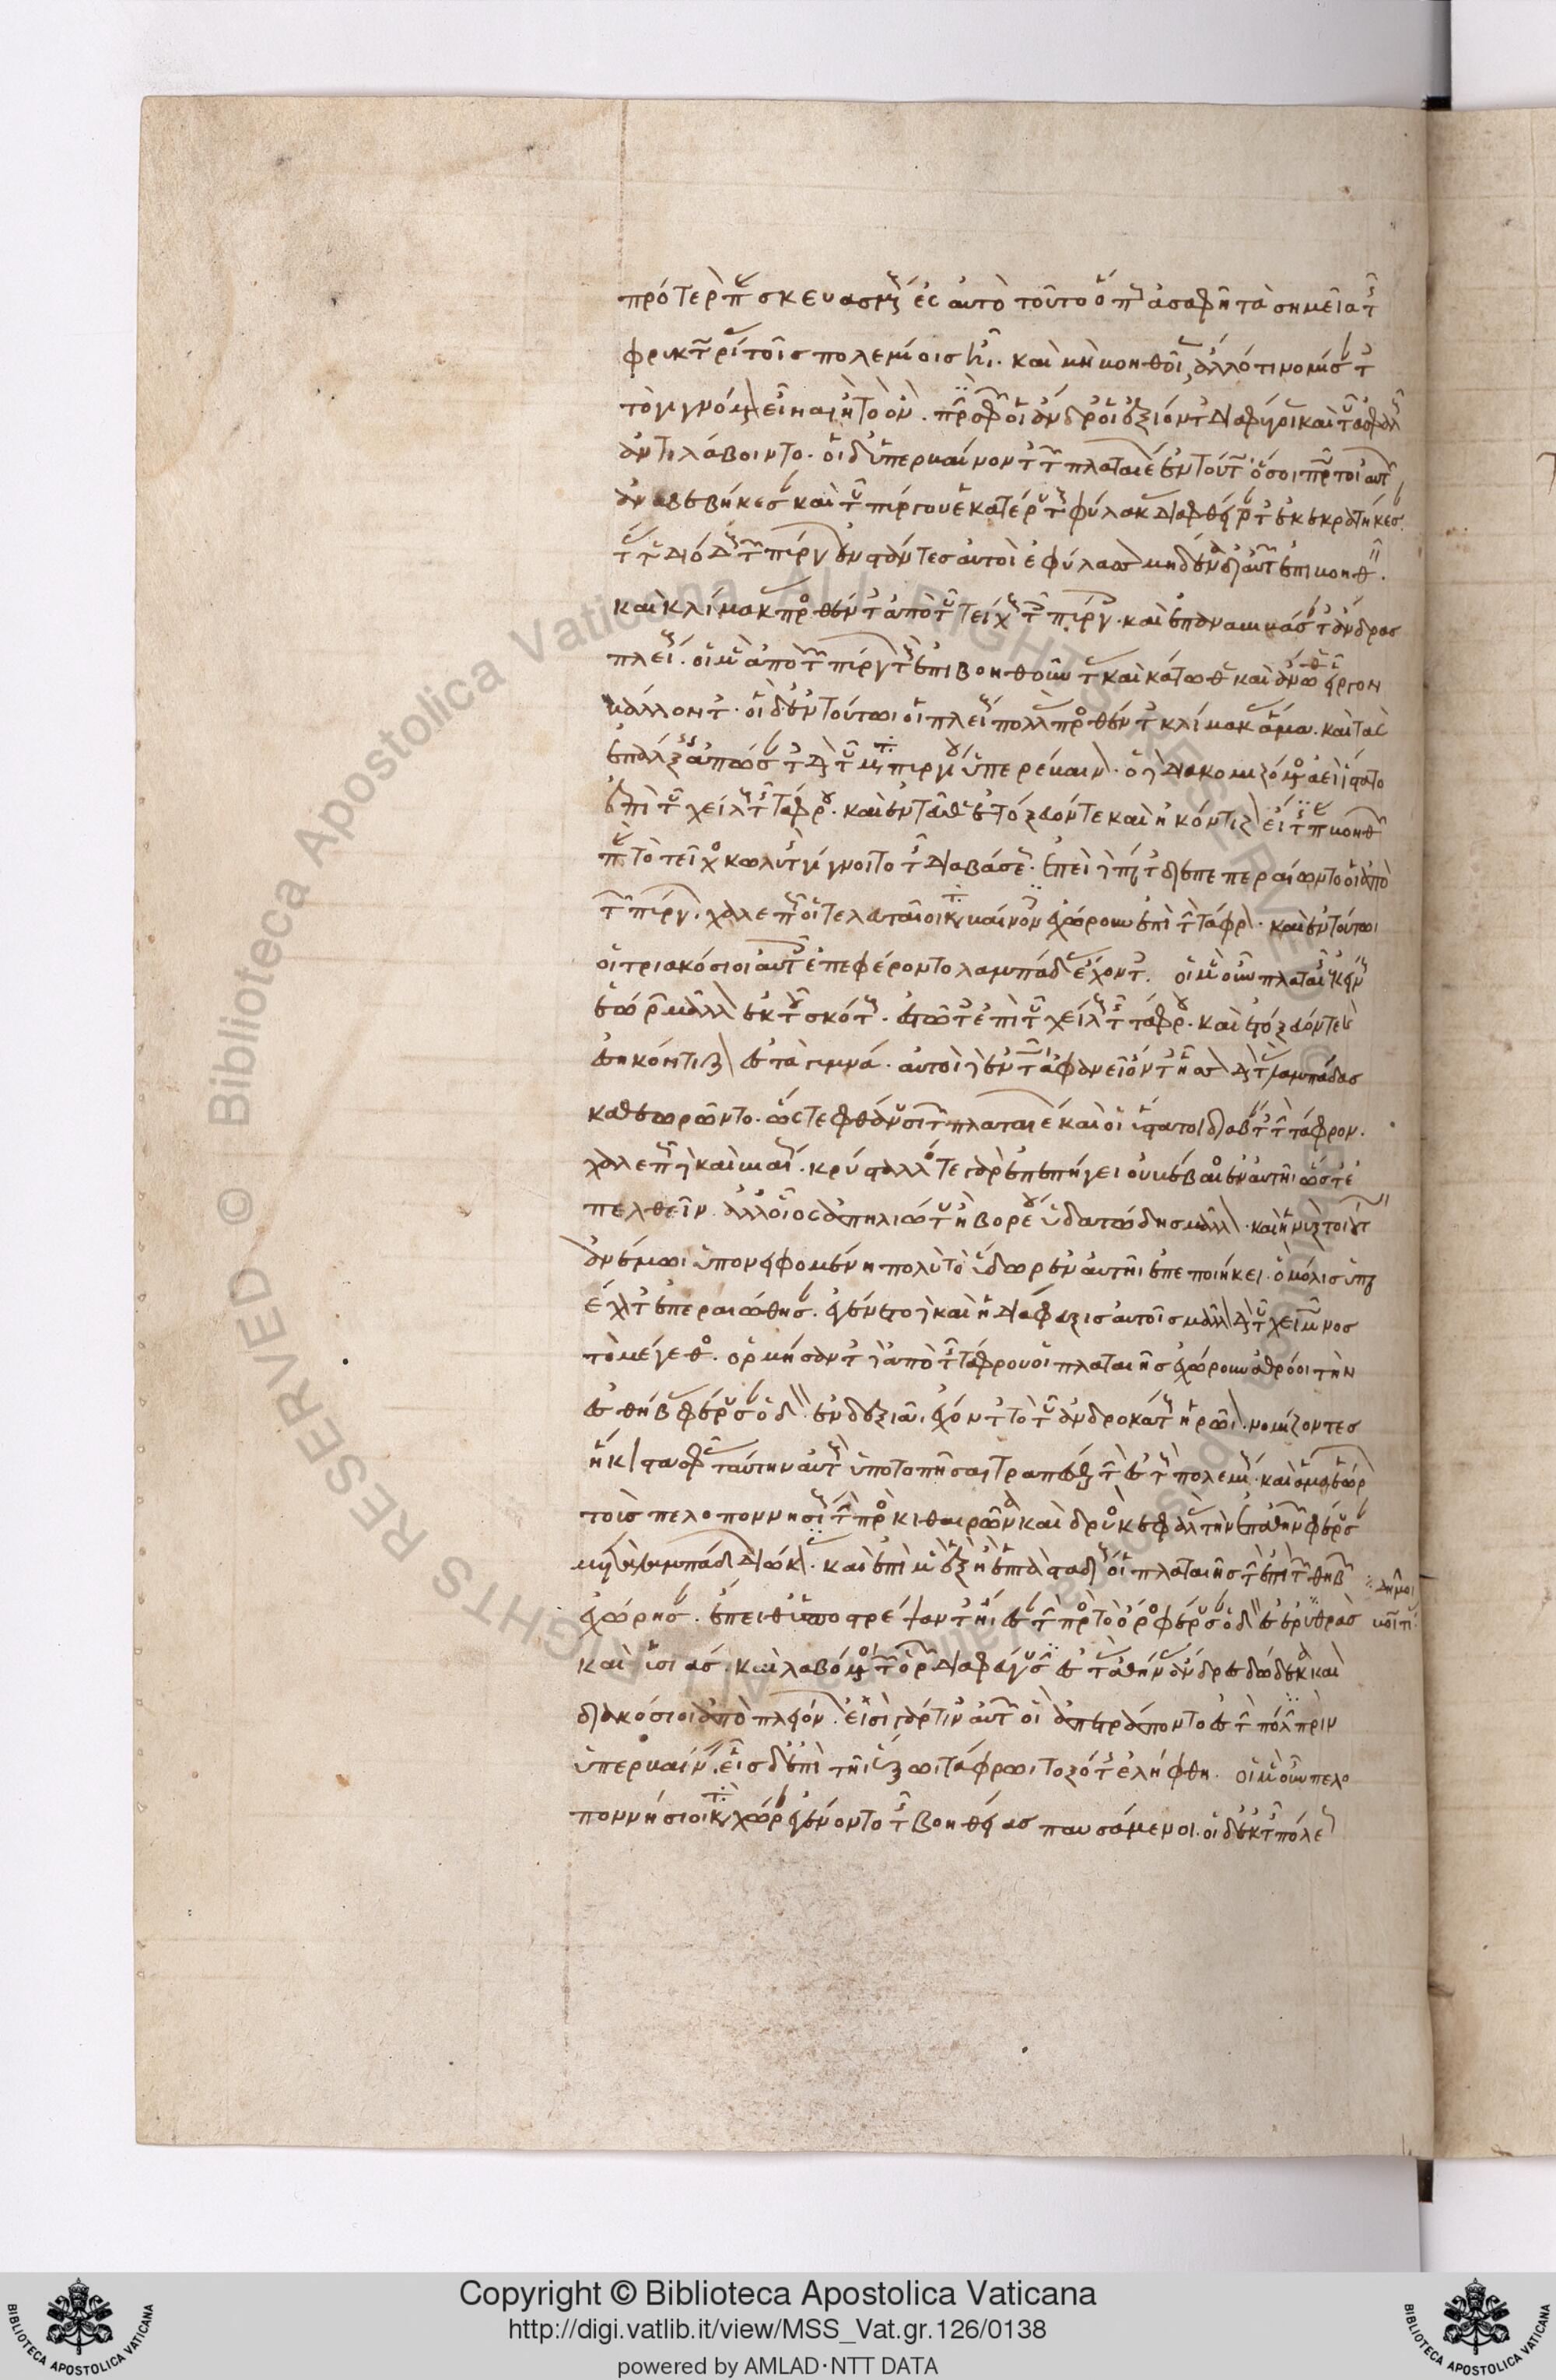 πρότερον παρεσκευασμένους ἐς αὐτὸ τοῦτο ὅπως ἀσαφῆ τὰ σημεῖα τῆς
φρυκτωρίας τοῖς πολεμίοις ᾖ. καὶ μὴ βοηθοῖεν, ἄλλό τι νομίσαντες
τὸ γιγνόμενον εἶναι ἢ τὸ ὄν. πρὶν σφῶν οἱ ἄνδρες οἱ ἐξιόντες διαφύγοιεν καὶ τοῦ ἀσφαλοῦς
ἀντιλάβοιντο. οἱ δ' ὑπερβαίνοντες τῶν πλαταιέων ἐν τούτῳ ὡς οἱ πρῶτοι αὐτῶν
ἀναβεβήκεσαν καὶ τοῦ πύργου ἑκατέρου τοὺς φύλακας διαφθείραντες ἐκεκρατήκεσαν.
τάς τε διόδους τῶν πύργων ἐνστάντες αὐτοὶ ἐφύλασσον μηδένα δι' αὐτῶν ἐπιβοηθεῖν.
καὶ κλίμακας προσθέντες ἀπὸ τοῦ τείχους τοῖς πύργοις. καὶ ἐπαναβιβάσαντες ἄνδρας
πλείους. οἱ μὲν ἀπὸ τῶν πύργων τοὺς ἐπιβοηθοῦντας καὶ κάτωθεν καὶ ἄνωθεν εἶργον
βάλλοντες. οἱ δ' ἐν τούτωι οἱ πλείους πολλὰς προσθέντες κλίμακας ἅμα. καὶ τὰς
ἐπάλξεις ἀπώσαντες διὰ τοῦ μεταπυργίου ὑπερέβαινον. ὁ δὲ διακομιζόμενος ἀεὶ ἵστατο
ἐπὶ τοῦ χείλους τῆς τάφρου. καὶ ἐντεῦθεν ἐτόξευόν τε καὶ ἠκόντιζον εἴ τις παραβοηθῶν
παρὰ τὸ τεῖχος κωλυτὴς γίγνοιτο τῆς διαβάσεως. ἐπεὶ δὲ πάντες διεπεπεραίωντο οἱ ἀπὸ
τῶν πύργων. χαλεπῶς οἱ τελευταῖοι καταβαίνοντες ἐχώρουν ἐπὶ τὴν τάφρον. καὶ ἐν τούτωι
οἱ τριακόσιοι αὐτοῖς ἐπεφέροντο λαμπάδας ἔχοντες. οἱ μὲν οὖν πλαταιῆς ἐκείνους
ἑώρων μᾶλλον ἐκ τοῦ σκότους. ἑστῶτες ἐπὶ τοῦ χείλους τῆς τάφρου. καὶ ἐτόξευόν τε καὶ
ἐσηκόντιζον ἐς τὰ γυμνά. αὐτοὶ δὲ ἐν τῷ ἀφανεῖ ὄντες ἧσσον διὰ τὰς λαμπάδας
καθεωρῶντο. ὥστε φθάνουσι τῶν πλαταιέων καὶ οἱ ὕστατοι διαβάντες τὴν τάφρον.
χαλεπῶς δὲ καὶ βιαίως. κρύσταλλός τε γὰρ ἐπεπήγει οὐ βέβαιος ἐν αὐτῆι ὥστ' ἐ
πελθεῖν ἀλλ' οἷος ἀπηλιώτου ἢ βορέου ὑδατώδης μᾶλλον. καὶ ἡ νὺξ τοιούτῳ
ἀνέμωι ὑπονειφομένη πολὺ τὸ ὕδωρ ἐν αὐτῆι ἐπεποιήκει. ὃ μόλις ὑπερ
έχοντες ἐπεραιώθησαν. ἐγένετο δὲ καὶ ἡ διάφευξις αὐτοῖς μᾶλλον διὰ τοῦ χειμῶνος
τὸ μέγεθος. ὁρμήσαντες δὲ ἀπὸ τῆς τάφρου οἱ πλαταιῆς ἐχώρουν ἁθρόοι τὴν
ἐς θήβας φέρουσαν ὁδὸν. ἐν δεξιᾷ ἔχοντες τὸ τοῦ ἀνδροκράτους ἡρῷον. νομίζοντες
ἥκιστα σφᾶς ταύτην αὐτοὺς ὑποτοπῆσαι τραπέσθαι τὴν ἐς τοὺς πολεμίους. καὶ ἅμα ἑώρων
τοὺς πελοποννησίους τὴν πρὸς κιθαιρῶνα καὶ δρυὸς κεφαλὰς τὴν ἐπ' ἀθηνῶν φέρουσαν
μετὰ λαμπάδων διώκοντας. καὶ ἐπὶ μὲν ἓξ ἢ ἑπτὰ σταδίους οἱ πλαταιῆς τὴν ἐπὶ τῶν θηβῶν
ἐχώρησαν. ἔπειθ' ὑποστρέψαντες ᾖσαν τὴν πρὸς τὸ ὄρος φέρουσαν ὁδὸν ἐς ἐρύθρας
καὶ ὑσιάς. καὶ λαβόμενοι τῶν ὀρῶν διαφεύγουσιν ἐς τὰς ἀθήνας ἄνδρες δώδεκα καὶ
διακόσιοι ἀπὸ πλειόνων. εἰσὶ γάρ τινες αὐτῶν οἳ ἀπετράποντο ἐς τὴν πόλιν πρὶν
ὑπερβαίνειν. εἷς δ' ἐπὶ τῆι ἔξωι τάφρωι τοξότης ἐλήφθη. οἱ μὲν οὖν πελο
ποννήσιοι κατὰ χώραν ἐγένοντο τῆς βοηθείας παυσάμενοι. οἱ δ' ἐκ τῆς πόλεως
Copyright © Biblioteca Apostolica Vaticana
http://digi.vatlib.it/view/MSS_Vat.gr.126/0138
powered by AMLAD·NTT DATA